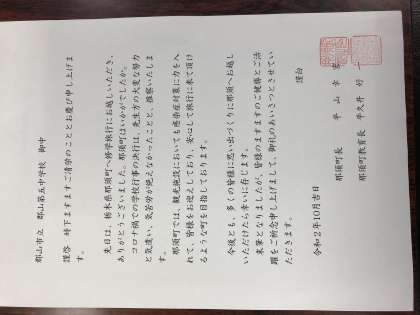 郡山市立 郡山第五中学校 御中
謹啓 時下ますますご清栄のこととお慶び申し上げま
す。
先日は、栃木県那須町へ修学旅行にお越しいただき、
ありがとうございました。那須町はいかがでしたか。
コロナ禍での学校行事の決行は、先生方の大変な努力
と気遣い、気苦労が絶えなかったことと、推察いたしま
す。
那須町では、観光施設においても感染症対策に力を入
れて、皆様をお迎えしており、安心して旅行に来て頂け
るような町を目指しております。
今後とも、多くの皆様に思い出づくりに那須へお越し
いただけたら幸いに存じます。
末筆となりましたが、皆様のますますのご健勝とご活
躍をご祈念申し上げまして、御礼のあいさつとさせてい
ただきます。
謹白
令和2年10月吉日
那須町長 平山 幸宏
那須町教育長 平久井 好一